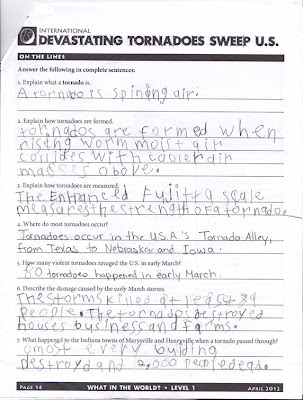 INTERNATIONAL
DEVASTATING TORNADOES SWEEP U.S.
ON THE LINES
Answer the following in complete sentences:
1. Explain what a tornado is.
A tornado is spinding air.
2. Explain how tornadoes are formed.
tornados are formed when
riseng worm moist air
collides with cooler air
masses above.
3. Explain how tornadoes are measured.
The Enhanced Fujitta scale
measures the strength of a tornado.
4. Where do most tornadoes occur?
Tornadoes occur in the U.S.A's Tornado Alley,
from Texas to Nebraska and Iowa.
5. How many violent tornadoes ravaged the U.S. in early March?
80 tornadoes happened in early March.
6. Describe the damage caused by the early March storms.
The storms killed at least 39
people. The tornados destroyed
houses business and farms.
7. What happened to the Indiana towns of Marysville and Henryville when a tornado passed through?
omost every bulding
destroyd and 2,000 people
PAGE 14
WHAT IN THE WORLD? • LEVEL 1
APRIL 2012